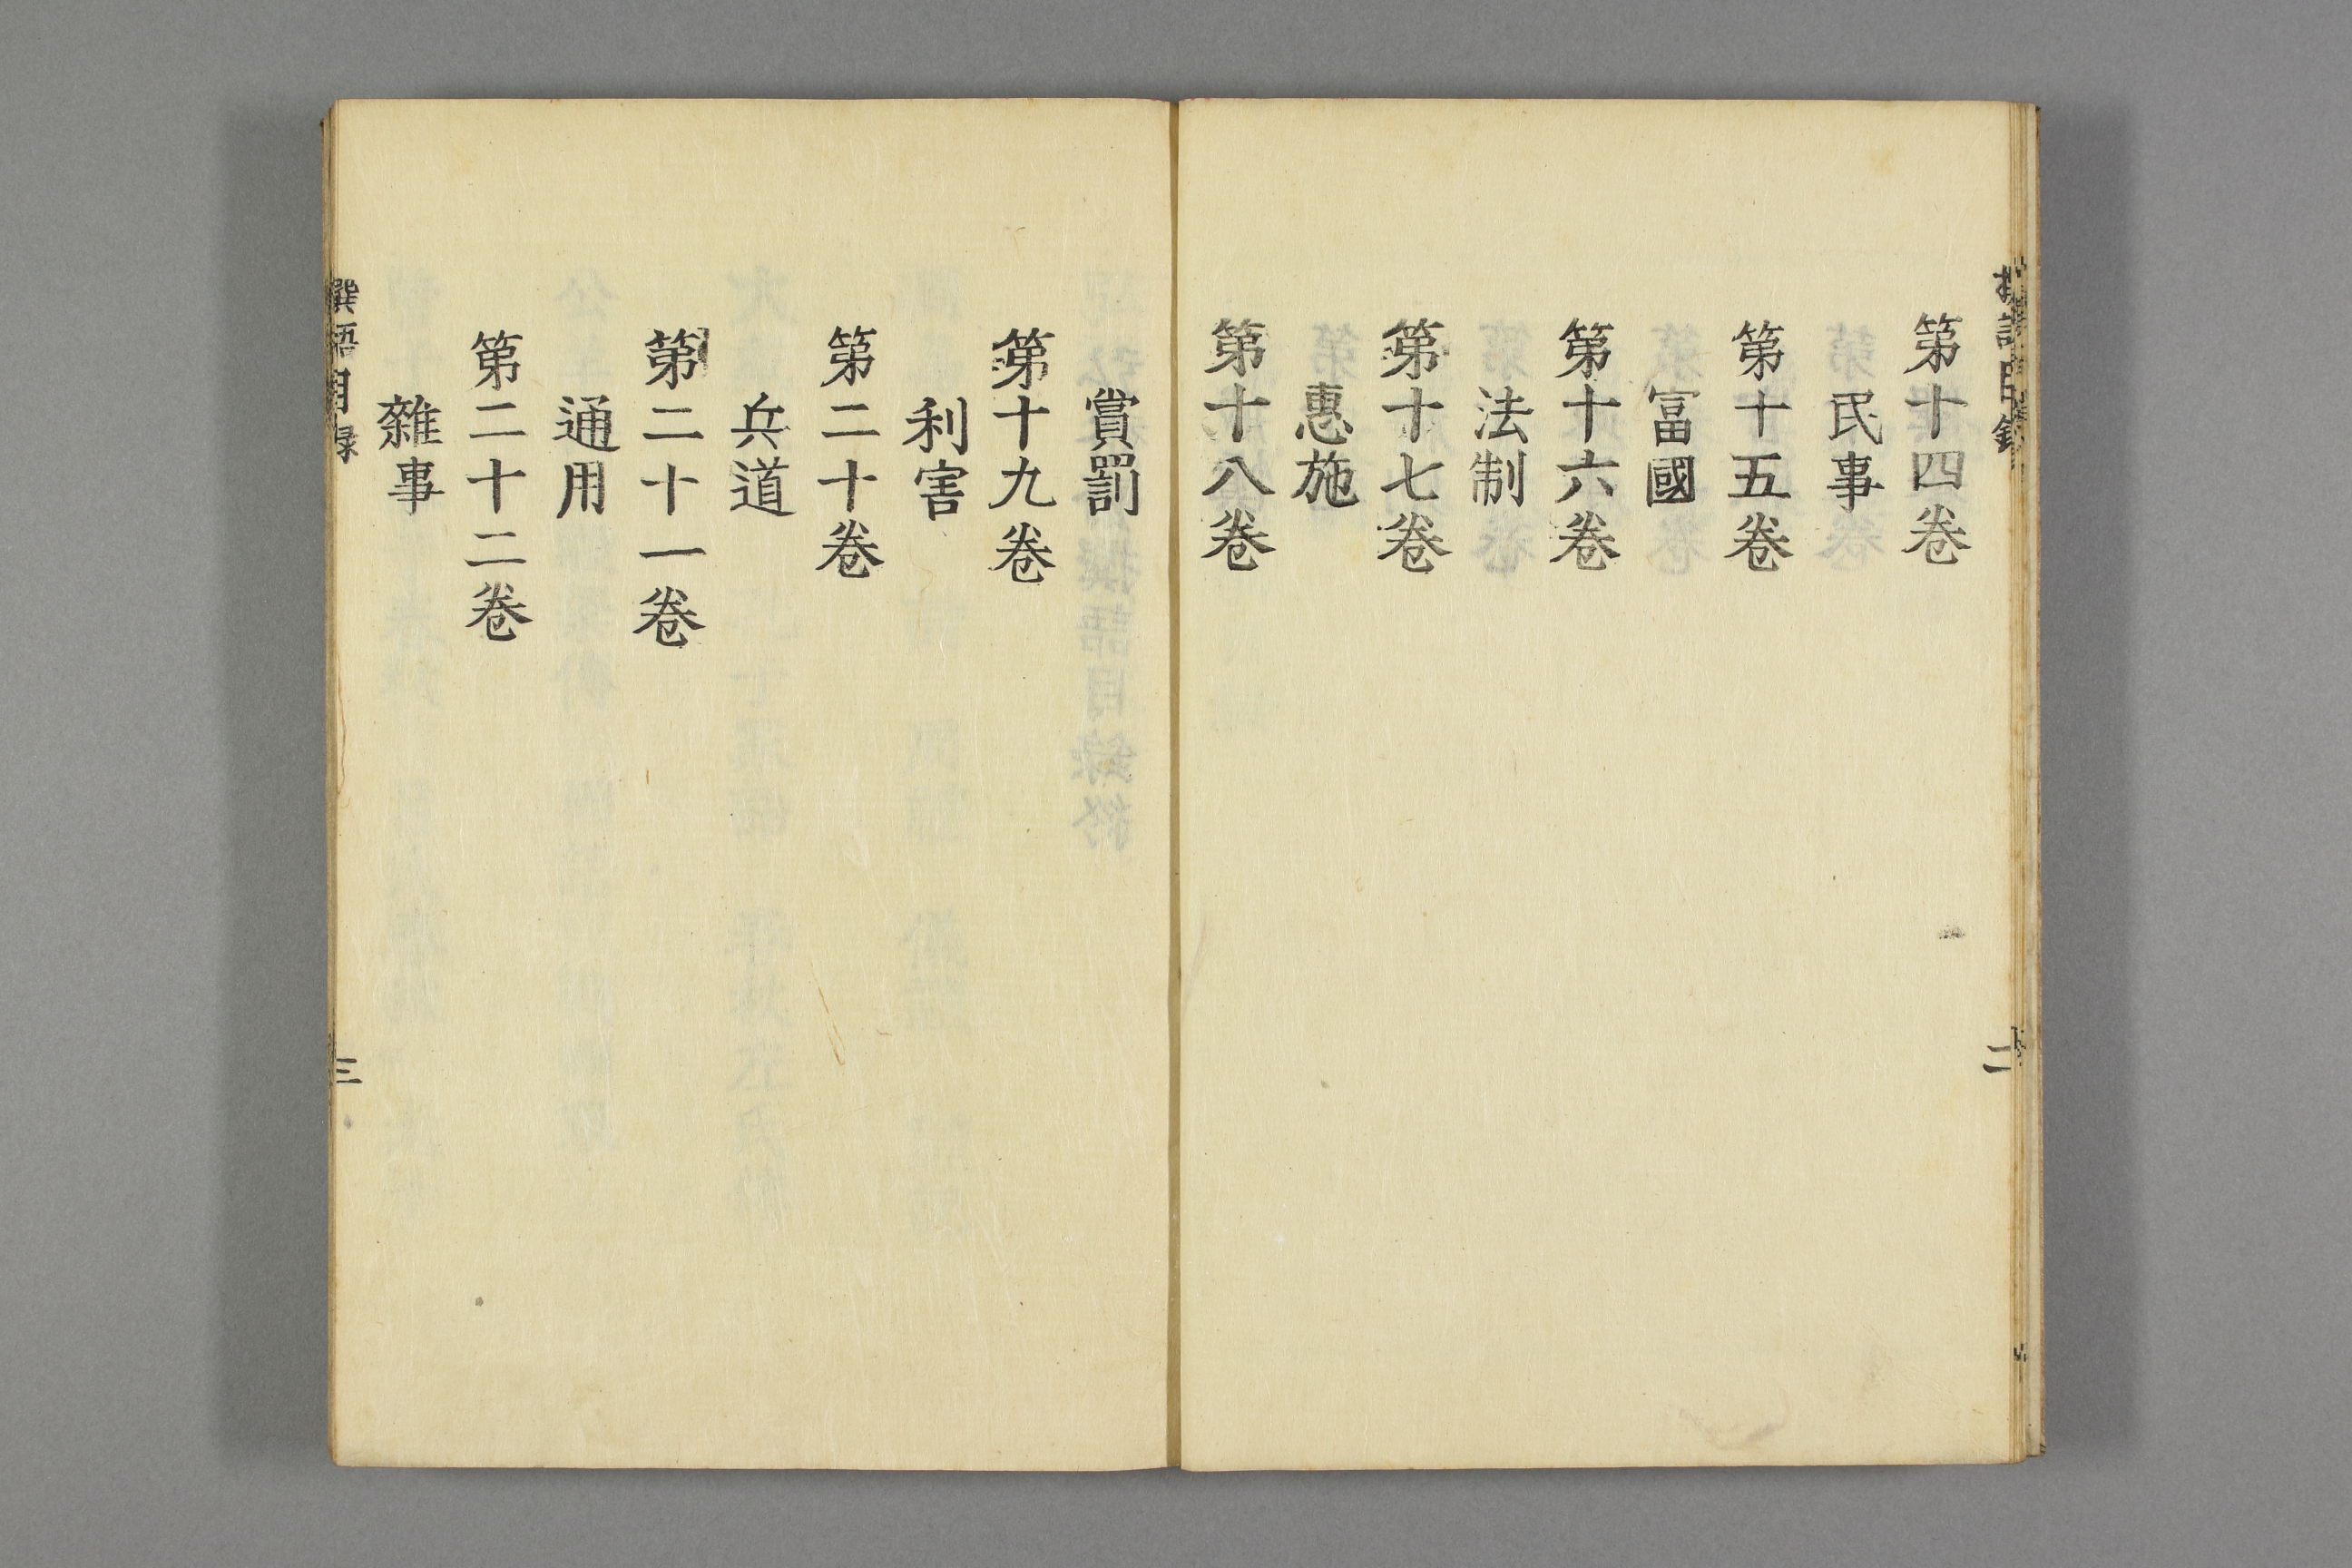 第十四卷
民事
第十五卷
冨國
第十六卷
法制
第十七卷
惠施
第十八卷
二
賞罰
第十九卷
利害
第二十卷
兵道
第二十一卷
通用
第二十二卷
雜事
撰語目録
三